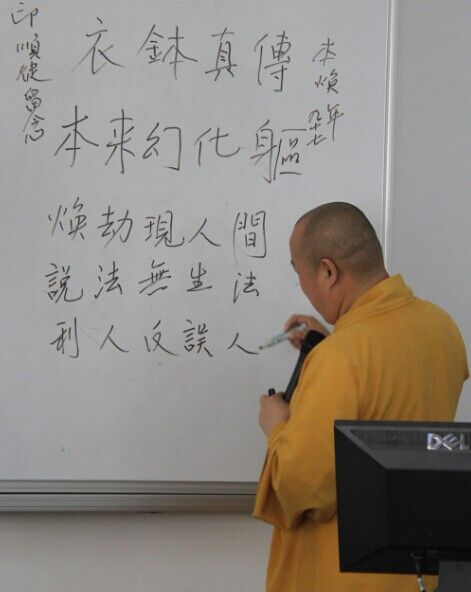 衣鉢真傳
本焕
九十七年
本来幻化軀
焕劫現人間
説法無生法
利人反誤人
印順徒留念
DELL